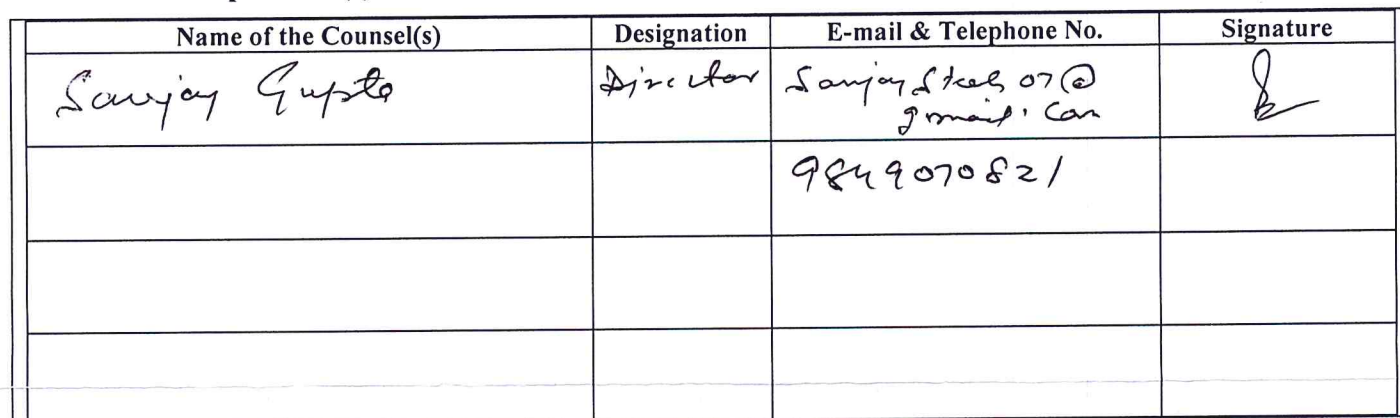 Name of the Counsel(s) Designation E-mail & Telephone No. Signature
Sanjay Gupta Director Sanjay Steels 07@
gmail.com
9849070821